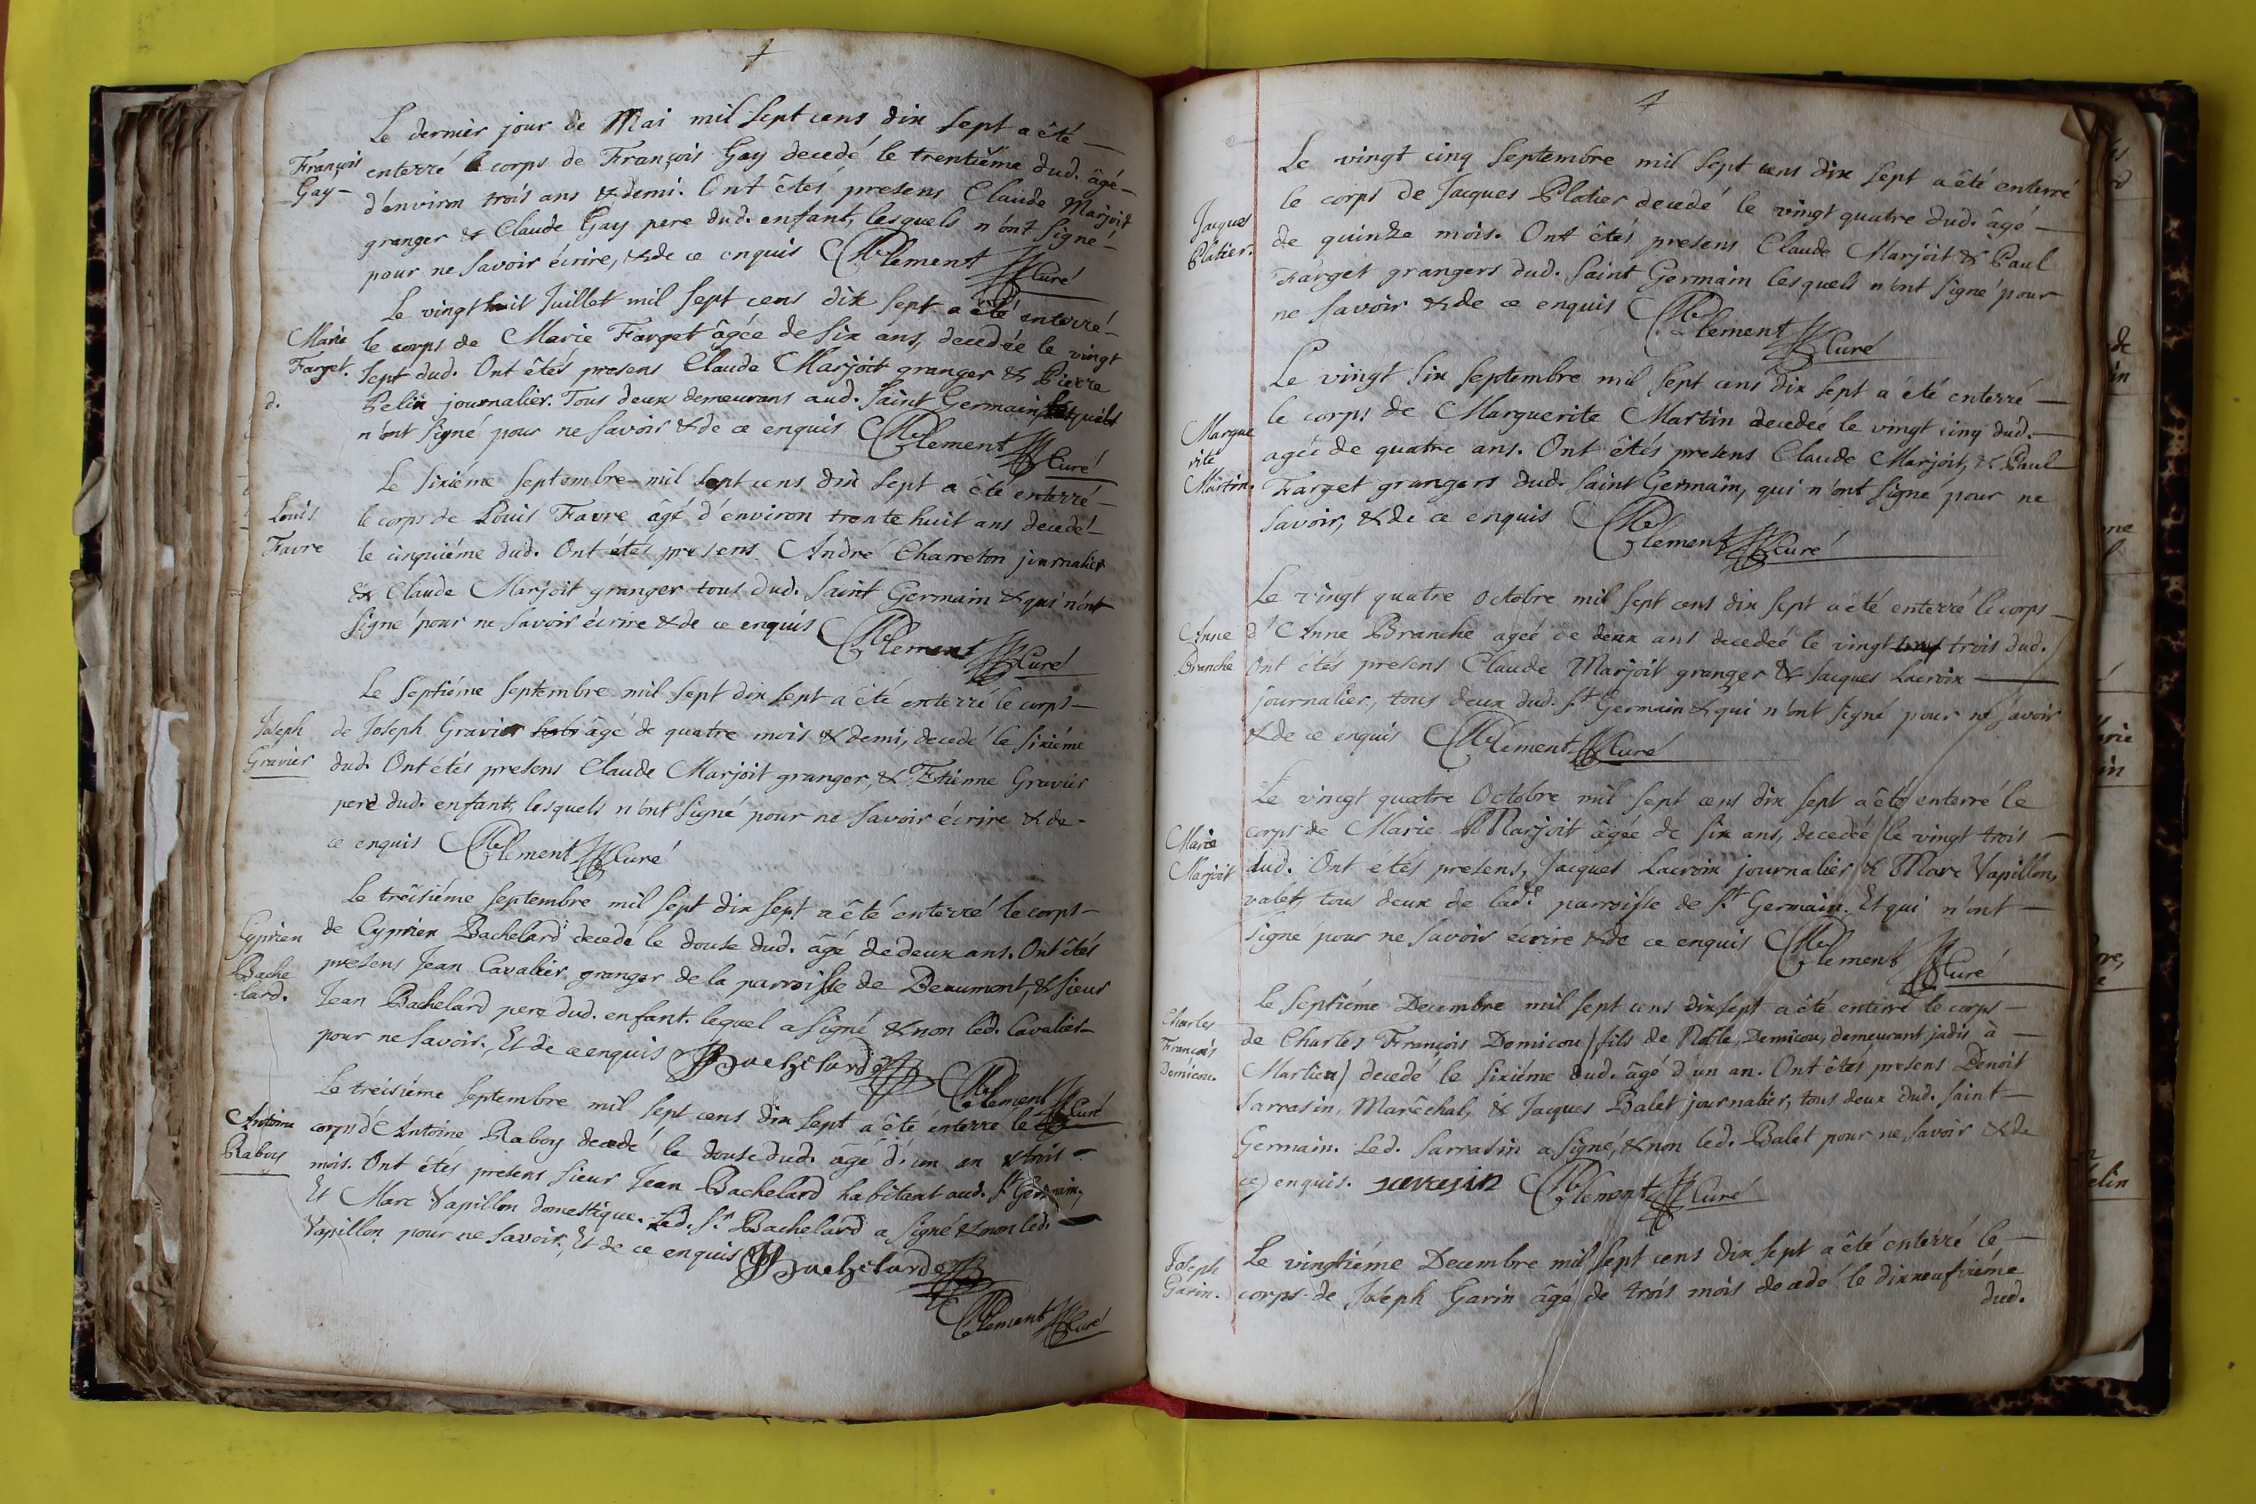 Le dernier jour de Mai mil sept cens dix sept a êté
François
Gay
enterré le corps de François Gay decedé le trentiéme dud. âgé
d'environ trois ans & demi. Ont êtés presens Claude Marjoit
granger & Claude Gay pere dud. enfant, lesquels n'ont signé
pour ne savoir écrire, & de ce enquis Clement Curé
Le vingt huit Juillet mil sept cens dix sept a êté enterré
Marie
Farget.
le corps de Marie Farget âgée de six ans, decedée le vingt
sept dud. Ont êtés presens Claude Marjoit granger & Pierre
d.
Pelin journalier. Tous deux demeurans aud. Saint Germain lesquels
n'ont signé pour ne savoir & de ce enquis Clement Curé
Le sixiéme Septembre mil sept cens dix sept a êté enterré
Louis
Favre
le corps de Louis Favre âgé d'environ trente huit ans decedé
le cinquiéme dud. Ont étés presens André Charreton journalier
& Claude Marjoit granger tous dud. Saint Germain & qui n'ont
signé pour ne savoir écrire & de ce enquis Clement Curé
Le septiéme septembre mil sept dix sept a êté enterré le corps
Joseph
Gravier
de Joseph Gravier âgé de quatre mois & demi, decedé le sixiéme
dud. Ont êtés presens Claude Marjoit granger, & Etienne Gravier
pere dud. enfant, lesquels n'ont signé pour ne savoir écrire & de
ce enquis Clement Curé
Le trêisiéme septembre mil sept dix sept a êté enterré le corps
Cyprien
Bache
lard.
de Cyprien Bachelard decedé le douse dud. âgé de deux ans. Ont êtés
presens Jean Cavalier granger de la parroisse de Beaumont, & sieur
Jean Bachelard pere dud. enfant. lequel a signé & non led. Cavalier
pour ne savoir. Et de ce enquis Bachelard Clement Curé
Le tréisiéme septembre mil sept cens dix sept a êté enterré le
Antoine
Raboy
corps d'Antoine Raboy decedé le douse dud. âgé d'un an & trois
mois. Ont étés presens sieur Jean Bachelard habitant aud. St Germain,
Et Marc Vapillon domestique. Led. Sr Bachelard a signé & non led.
Vapillon pour ne savoir. Et de ce enquis Bachelard
Clement Curé
Le vingt cinq Septembre mil sept cens dix sept a été enterré
Jacques
Platier.
le corps de Jacques Platier decedé le vingt quatre dud. âgé
de quinze mois. Ont êtés presens Claude Marjoit & Paul
Farget grangers dud. Saint Germain lesquels n'ont signé pour
ne savoir & de ce enquis Clement Curé
Le vingt six septembre mil sept cens dix sept a été enterré
Margue
rite
Martin.
le corps de Marguerite Martin decedée le vingt cinq dud.
agée de quatre ans. Ont êtés presens Claude Marjoit, & Paul
Farget grangers dud. Saint Germain, qui n'ont signé pour ne
savoir, & de ce enquis Clement Curé
Le vingt quatre octobre mil sept cens dix sept a été enterré le corps
Anne
Branche
d'Anne Branche agée de deux ans decedée le vingt trois dud.
Ont étés presens Claude Marjoit granger & Jacques Lacroix
journalier, tous deux dud. St Germain & qui n'ont signé pour ne savoir
& de ce enquis Clement Curé
Le vingt quatre Octobre mil sept cens dix sept a êté enterré le
Marie
Marjoit
corps de Marie Marjoit âgée de six ans, decedée le vingt trois
dud. Ont étés presens, Jacques Lacroix journalier & Marc Vapillon,
valet, tous deux de lade parroisse de St Germain. Et qui n'ont
signé pour ne savoir écrire & de ce enquis Clement Curé
Le septiéme Decembre mil sept cens dix sept a été enterré le corps
Charles
François
Demicou.
de Charles François Demicou (fils de Noble Demicou, demeurant jadis à
Marlieu) decedé le sixiéme dud. âgé d'un an. Ont êtés presens Benoit
Sarrasin, Marêchal, & Jacques Balet journalier, tous deux dud. Saint
Germain. Led. Sarrasin a signé, & non led. Balet pour ne savoir & de
ce enquis. sarasin Clement Curé
Le vingtiéme Decembre mil sept cens dix sept a êté enterré le
Joseph
Garin.
corps de Joseph Garin âgé de trois mois decedé le dixneufviéme
dud.